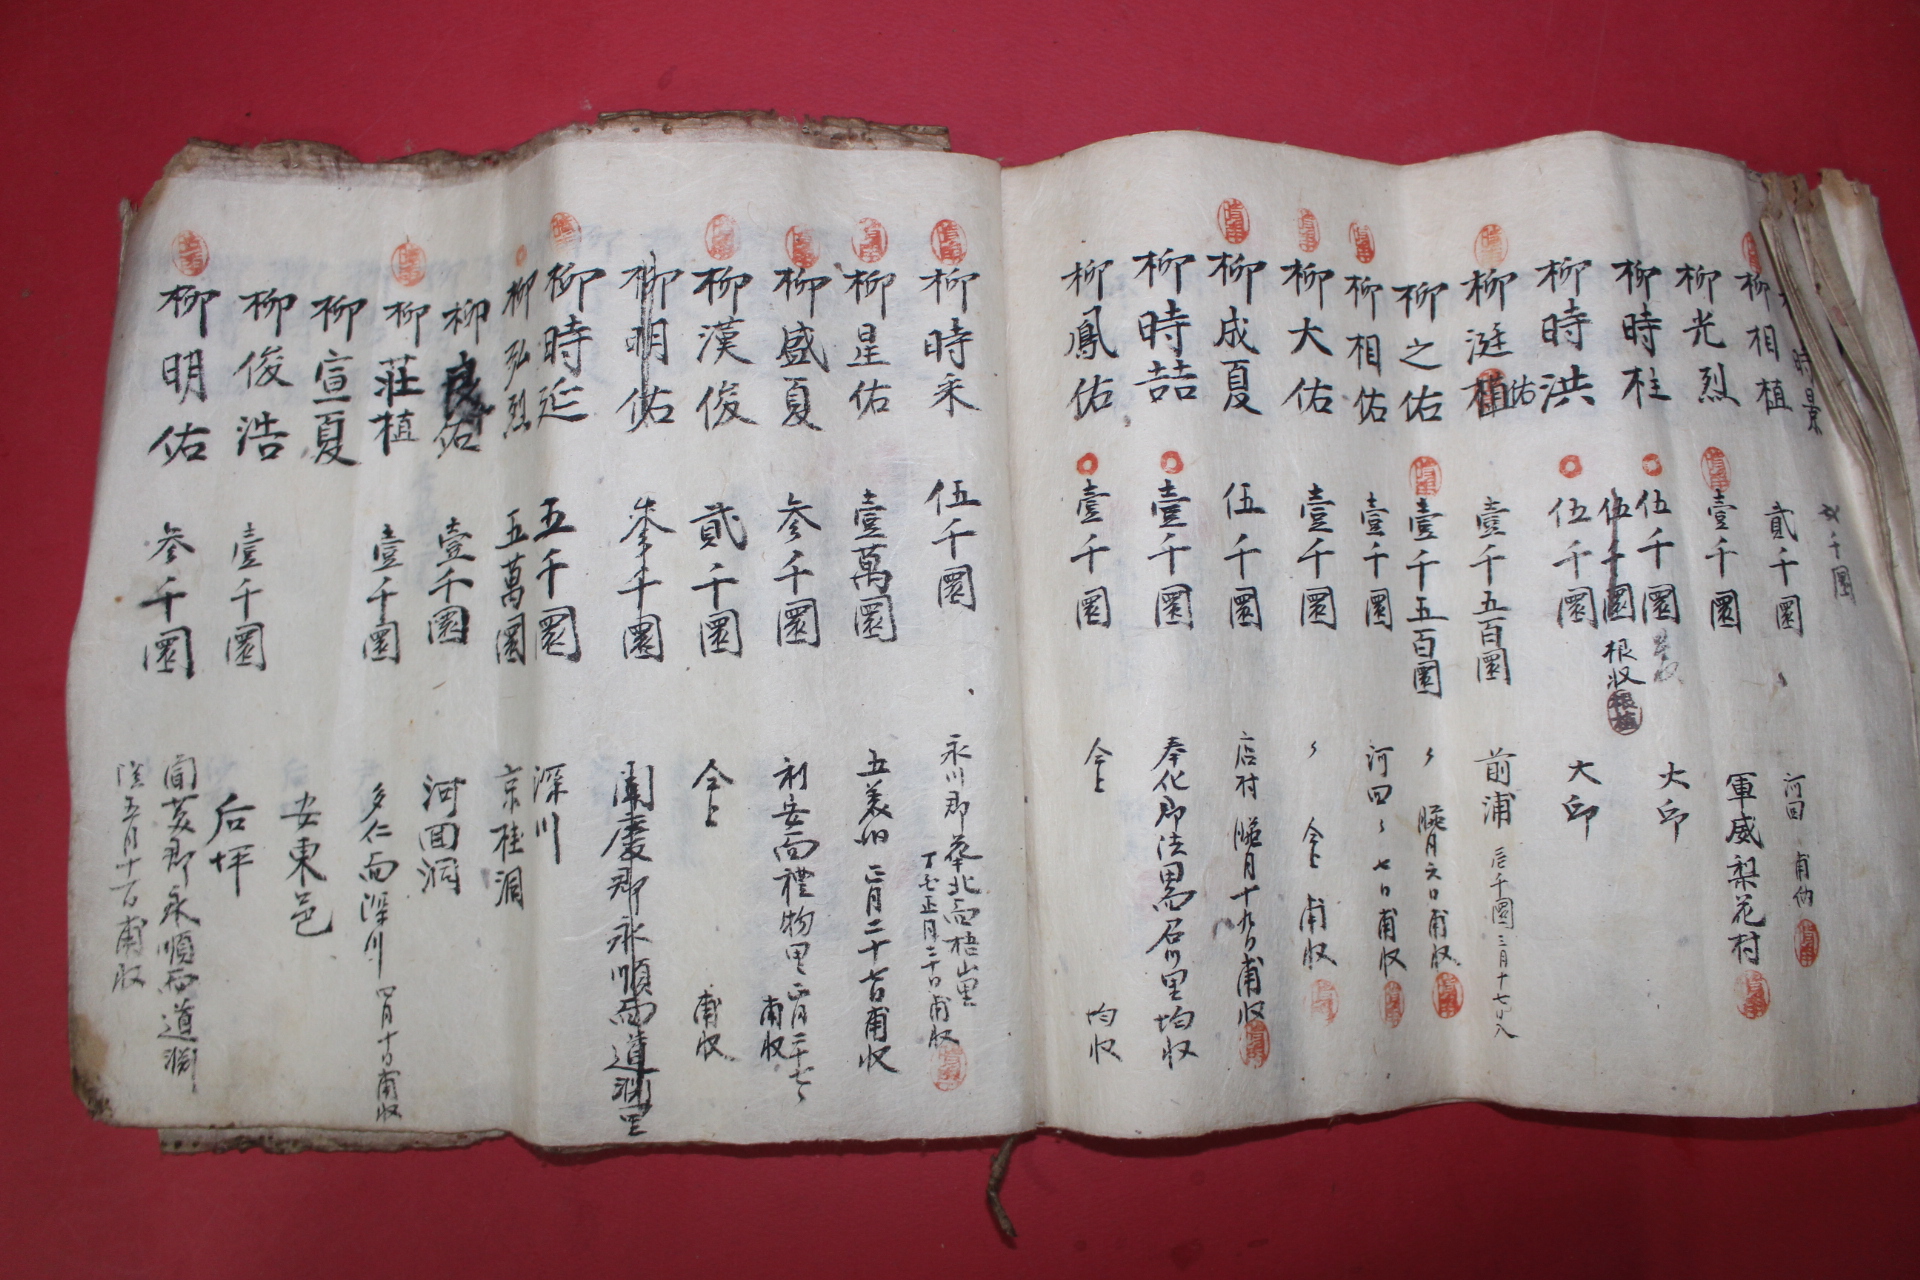 時景 千圜
柳相植 貳千圜 河回 甫
柳光烈 壹千圜 軍威梨花村
柳時柱 伍千圜 大邱
伍千圜 根收
柳時洪 伍千圜 大邱
柳 植 佑 壹千五百圜 前浦 三月十七日入
柳之佑 壹千五百圜 〃 臘月六日甫收
柳相佑 壹千圜 河回 〃 七日甫收
柳大佑 壹千圜 〃 仝上 甫收
柳成夏 伍千圜 店村 臘月十九日甫收
柳時喆 壹千圜 奉化郡法田面石川里 均收
柳鳳佑 壹千圜 仝上 均收
柳時采 伍千圜 永川郡華北面梧山里
丁酉正月二十日甫收
柳星佑 壹萬圜 五美洞 正月二十 日甫收
柳盛夏 參千圜 知安面禮物里 正月二十七日
甫收
柳漢俊 貳千圜 仝上 甫收
柳明佑 參千圜 聞慶郡永順面道淵里
柳時延 五千圜 深川
柳弘烈 五萬圜 京桂洞
柳良佑 壹千圜 河回洞
柳莊植 壹千圜 多仁面深川 四月十日甫收
柳宣夏 安東邑
柳俊浩 壹千圜 后坪
柳明佑 參千圜 聞慶郡永順面道淵
陰五月十 日甫收